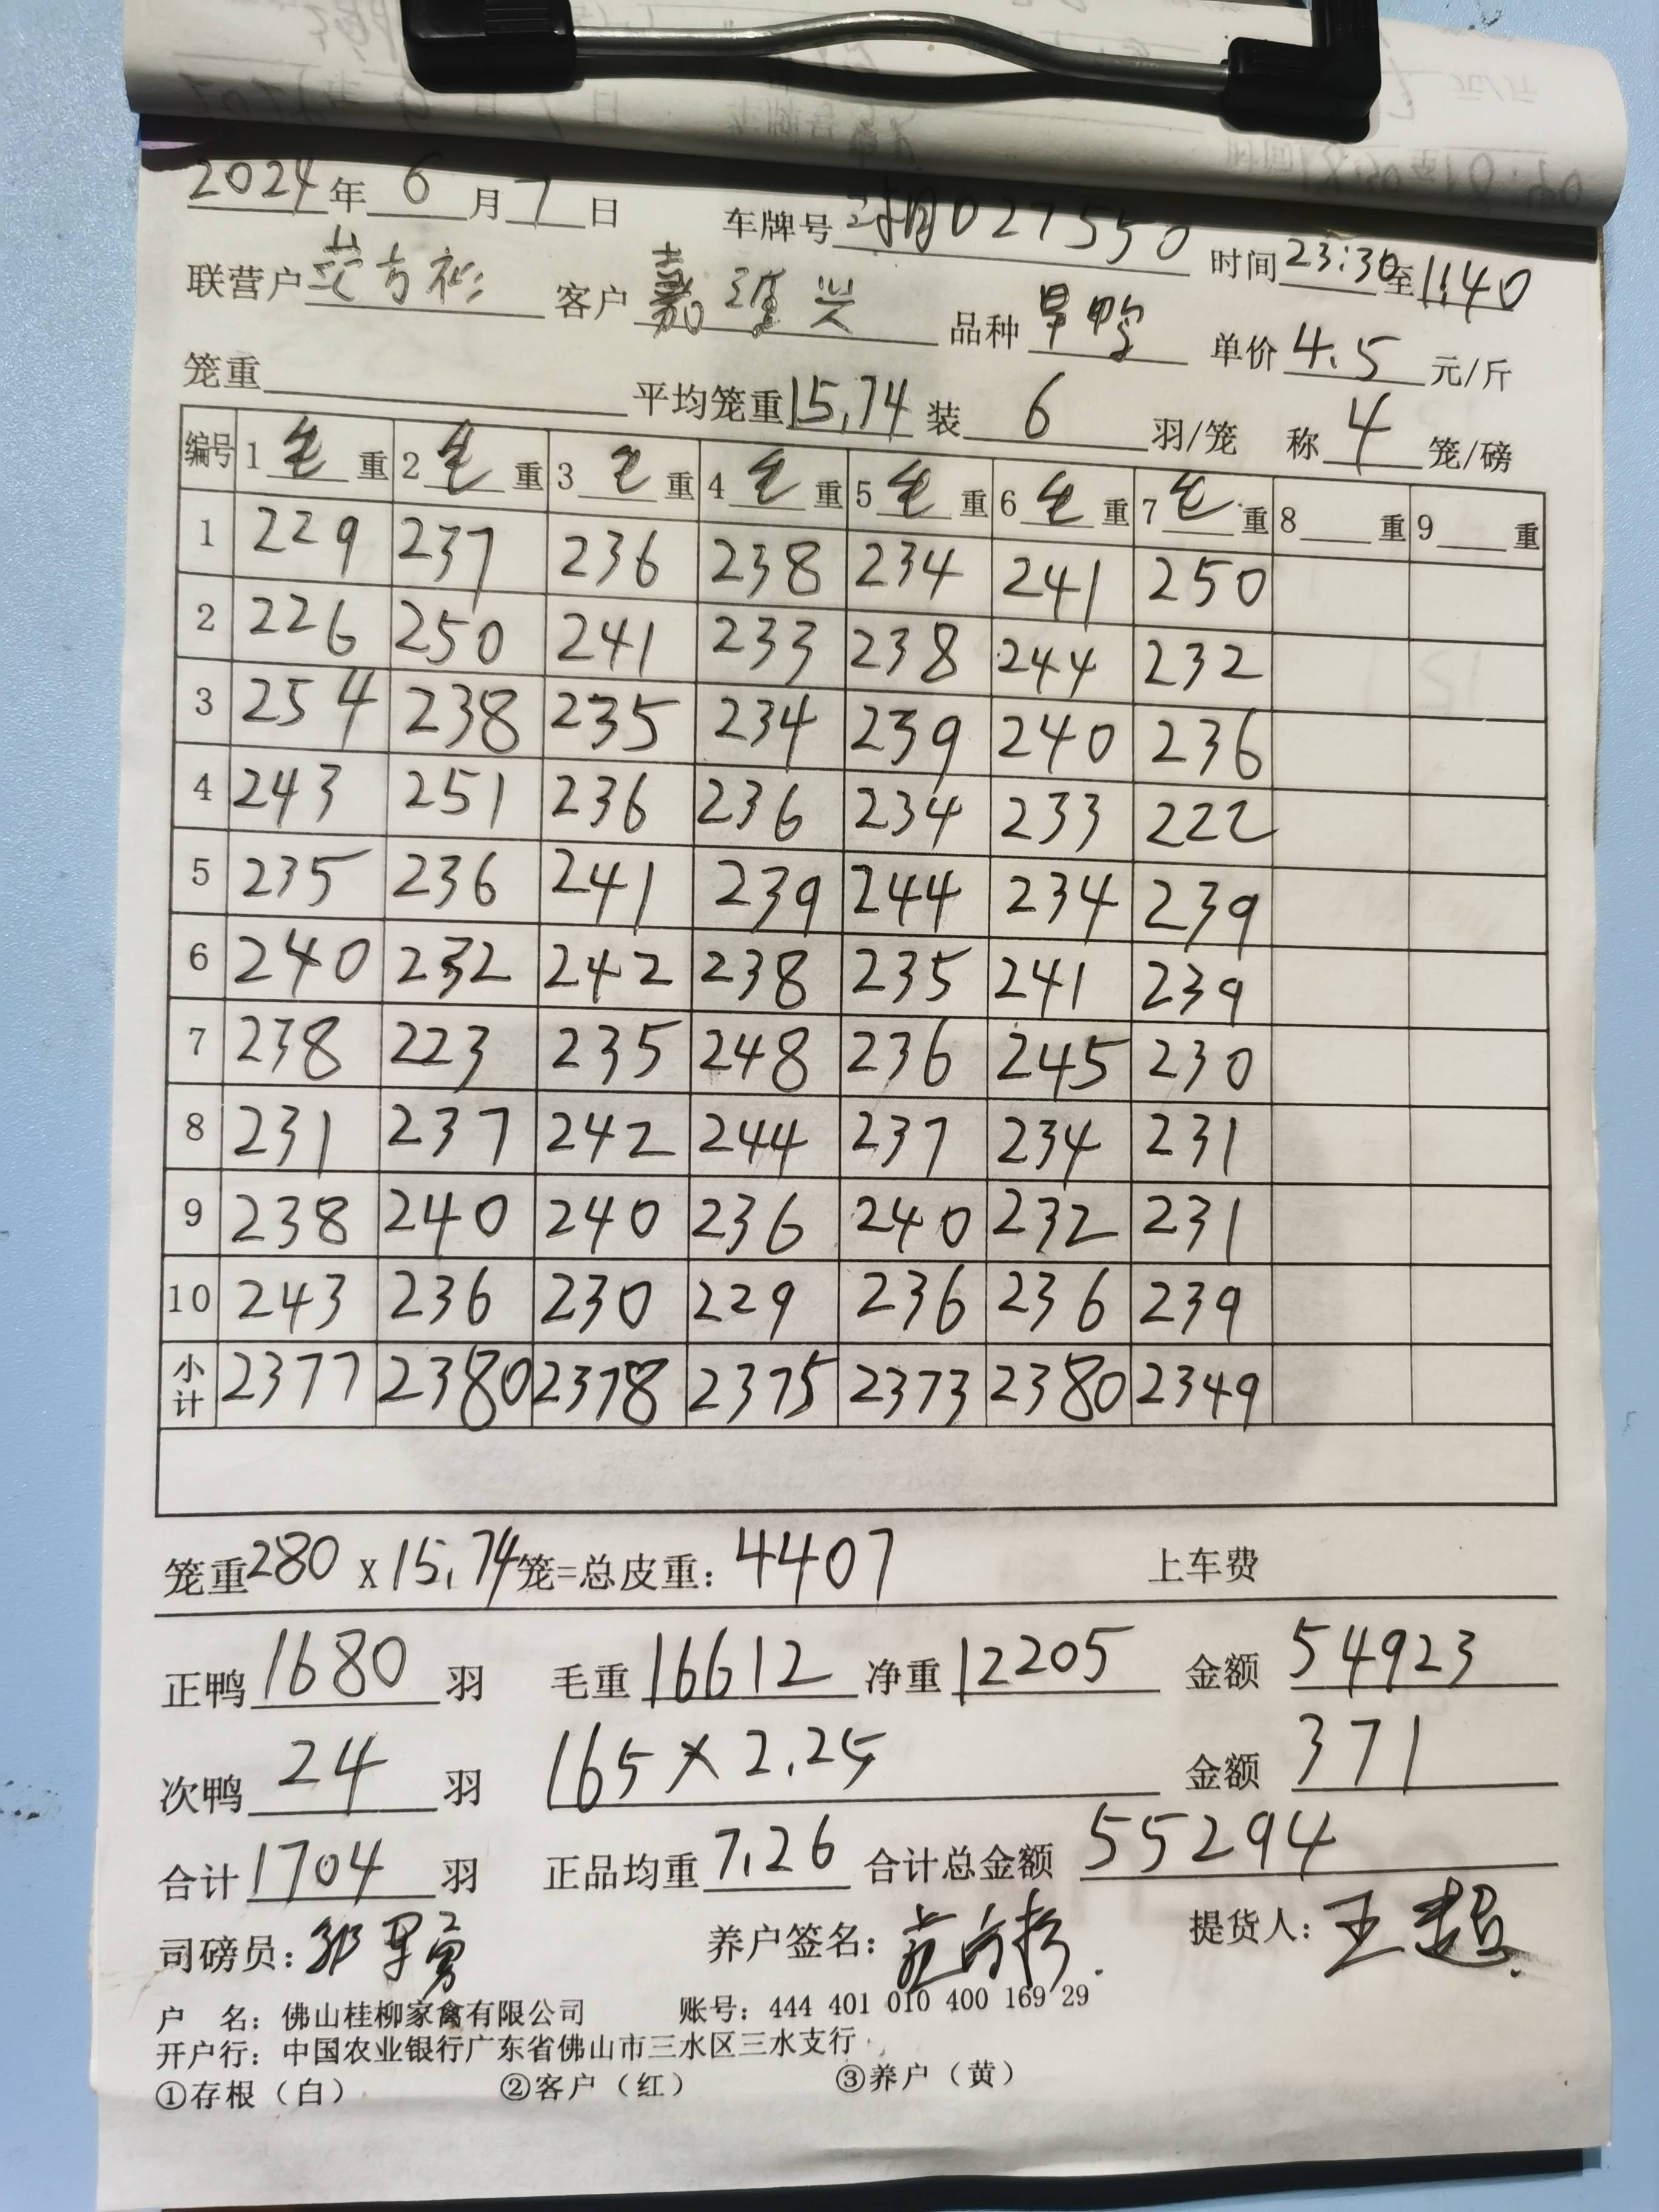 2024年6月7日 车牌号 湘D27550 时间23:30至1:40
联营户 范方衫 客户 嘉兴 品种 旱鸭 单价4.5元/斤
笼重 平均笼重15.74 装6羽/笼 称4笼/磅
编号 1毛重 2毛重 3毛重 4毛重 5毛重 6毛重 7毛重 8 重 9 重
1 229 237 236 238 234 241 250
2 226 250 241 233 238 244 232
3 254 238 235 234 239 240 236
4 243 251 236 236 234 233 222
5 235 236 241 239 244 234 239
6 240 232 242 238 235 241 239
7 238 223 235 248 236 245 230
8 231 237 242 244 237 234 231
9 238 240 240 236 240 232 231
10 243 236 230 229 236 236 239
小计 2377 2380 2378 2375 2373 2380 2349
笼重280 X 15.74笼=总皮重: 4407 上车费
正鸭1680羽 毛重16612 净重12205 金额54923
次鸭24羽 165×2.25 金额371
合计1704羽 正品均重7.26 合计总金额55294
司磅员: 邹早勇 养户签名: 范方衫. 提货人: 王超.
户 名: 佛山桂柳家禽有限公司 账号: 444 401 010 400 169 29
开户行: 中国农业银行广东省佛山市三水区三水支行
①存根（白） ②客户（红） ③养户（黄）